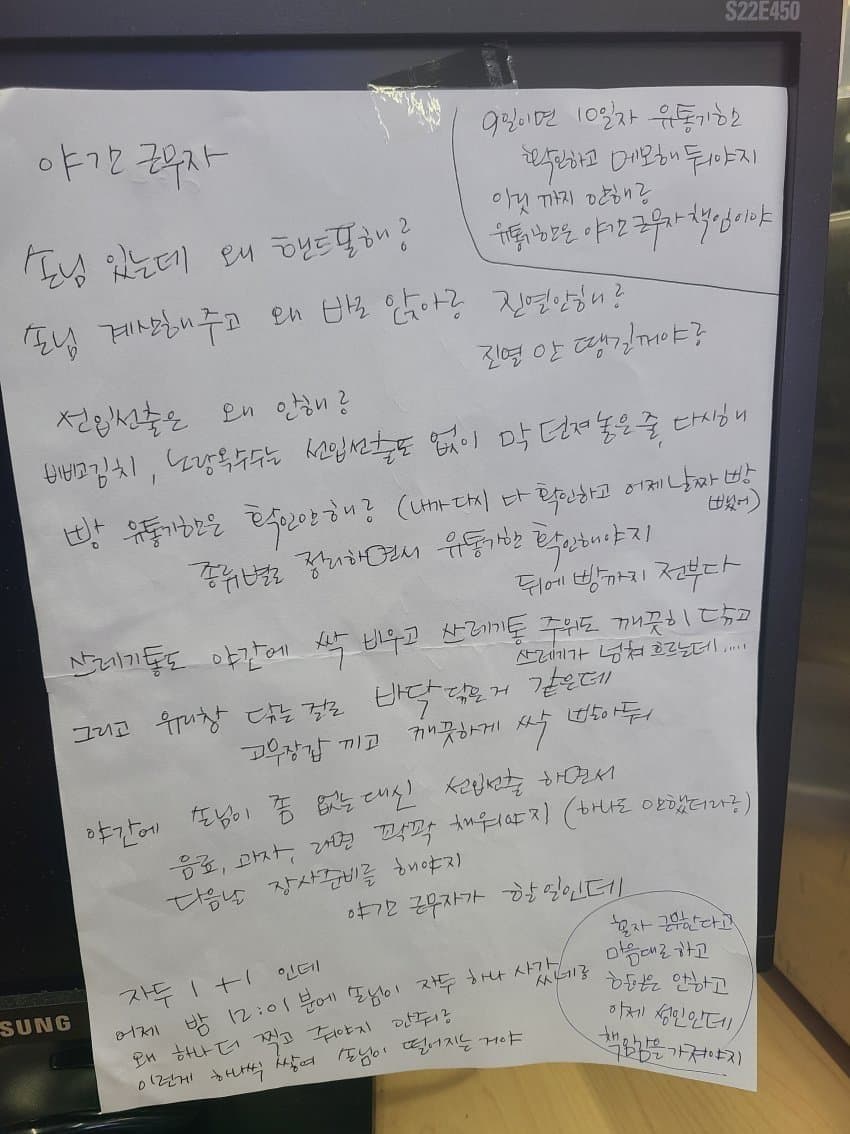 S22E450
야간 근무자
9일이면 10일자 유통기한
확인하고 메모해 둬야지
이것 까지 안해ㅎ
유통기한은 야간 근무자 책임이야
손님 있는데 왜 핸드폰해ㅎ
손님 계산해주고 왜 바로 앉아ㅎ 진열안해ㅎ
진열 안 땡길꺼야ㅎ
선입선출은 왜 안해ㅎ
비비고김치, 노랑옥수수는 선입선출도 없이 막 던져놓은 줄, 다시해
빵 유통기한은 확인안해ㅎ (내가 다시 다 확인하고 어제 날짜 빵
뺐어)
종류별로 정리하면서 유통기한 확인해야지
뒤에 빵까지 전부다
쓰레기통도 야간에 싹 비우고 쓰레기통 주위도 깨끗히 닦고
쓰레기가 넘쳐 흐르는데.....
그리고 유리창 닦는 걸로 바닥 닦은거 같은데
고무장갑 끼고 깨끗하게 싹 빨아둬
야간에 손님이 좀 없는대신 선입선출 하면서
음료, 과자, 라면 꽉꽉 채워야지 (하나도 안했더라ㅎ)
다음날 장사준비를 해야지
야간 근무자가 할일인데
자두 1+1 인데
어제 밤 12:01분에 손님이 자두 하나 사갔
왜 하나 더 찍고 줘야지 안줘ㅎ
이런게 하나씩 쌓여 손님이 떨어지는거야
혼자 근무한다고
마음대로하고
안하고
이제 성인인데
책임감을 가져야지
SAMSUNG